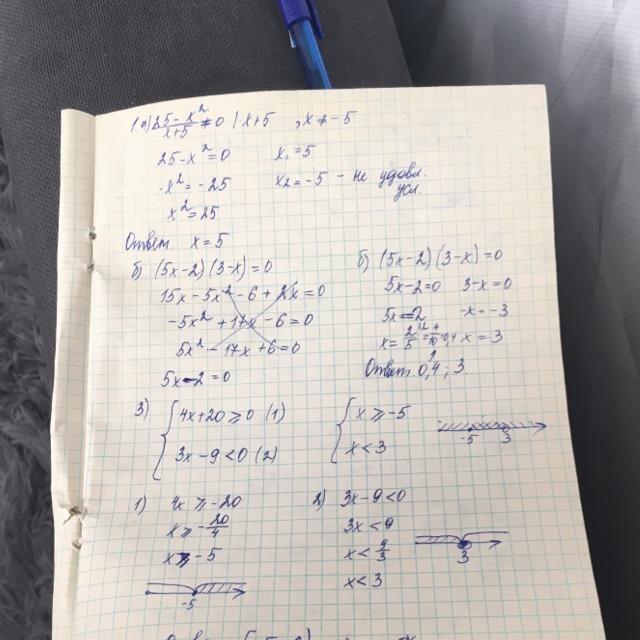 1.а) (25-x²)/(x+5) = 0 | ·x+5 , x ≠ -5
25-x²=0 x₁=5
-x²=-25 x₂=-5 - не удовл. усл.
x²=25
Ответ. x=5
б) (5x-2)(3-x)=0
15x-5x²-6+2x=0
-5x²+17x-6=0
5x²-17x+6=0
5x-2=0
б) (5x-2)(3-x)=0
5x-2=0 3-x=0
5x=2 -x=-3
x=2/5=4/10=0,4 x=3
Ответ. 0,4; 3.
3) { 4x+20≥0 (1) { x≥-5
3x-9<0 (2) x<3
-5 3
1) 4x≥-20
x≥-20/4
x≥-5
-5
2) 3x-9<0
3x<9
x<9/3
x<3
3